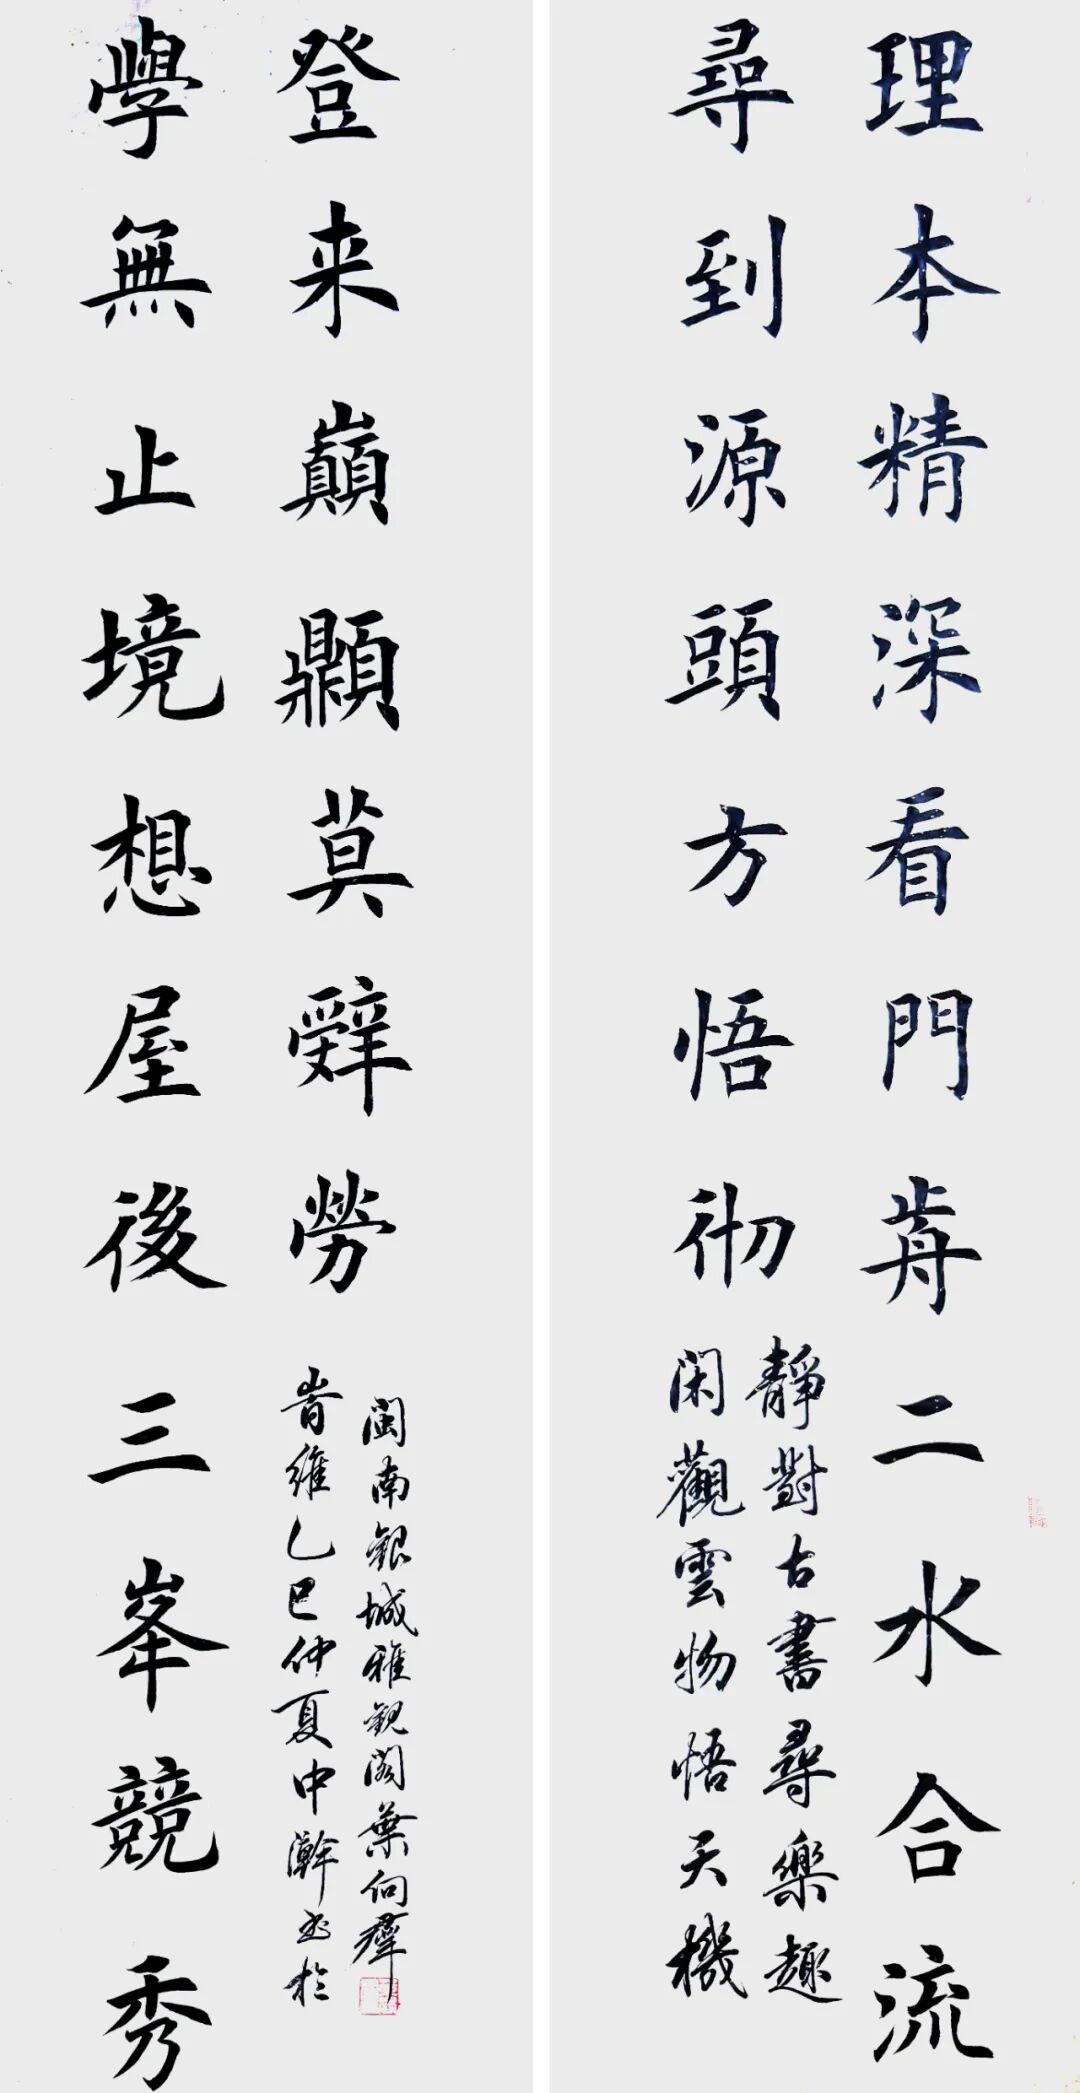 理本精深看門歬二水合流
尋到源頭方悟彻
靜對古書尋樂趣
閑觀雲物悟天機
學無止境想屋後三峯競秀
登来巔𩕢莫辤勞
旹維乙巳仲夏中澣书於
閩南銀城雅觀閣葉向群